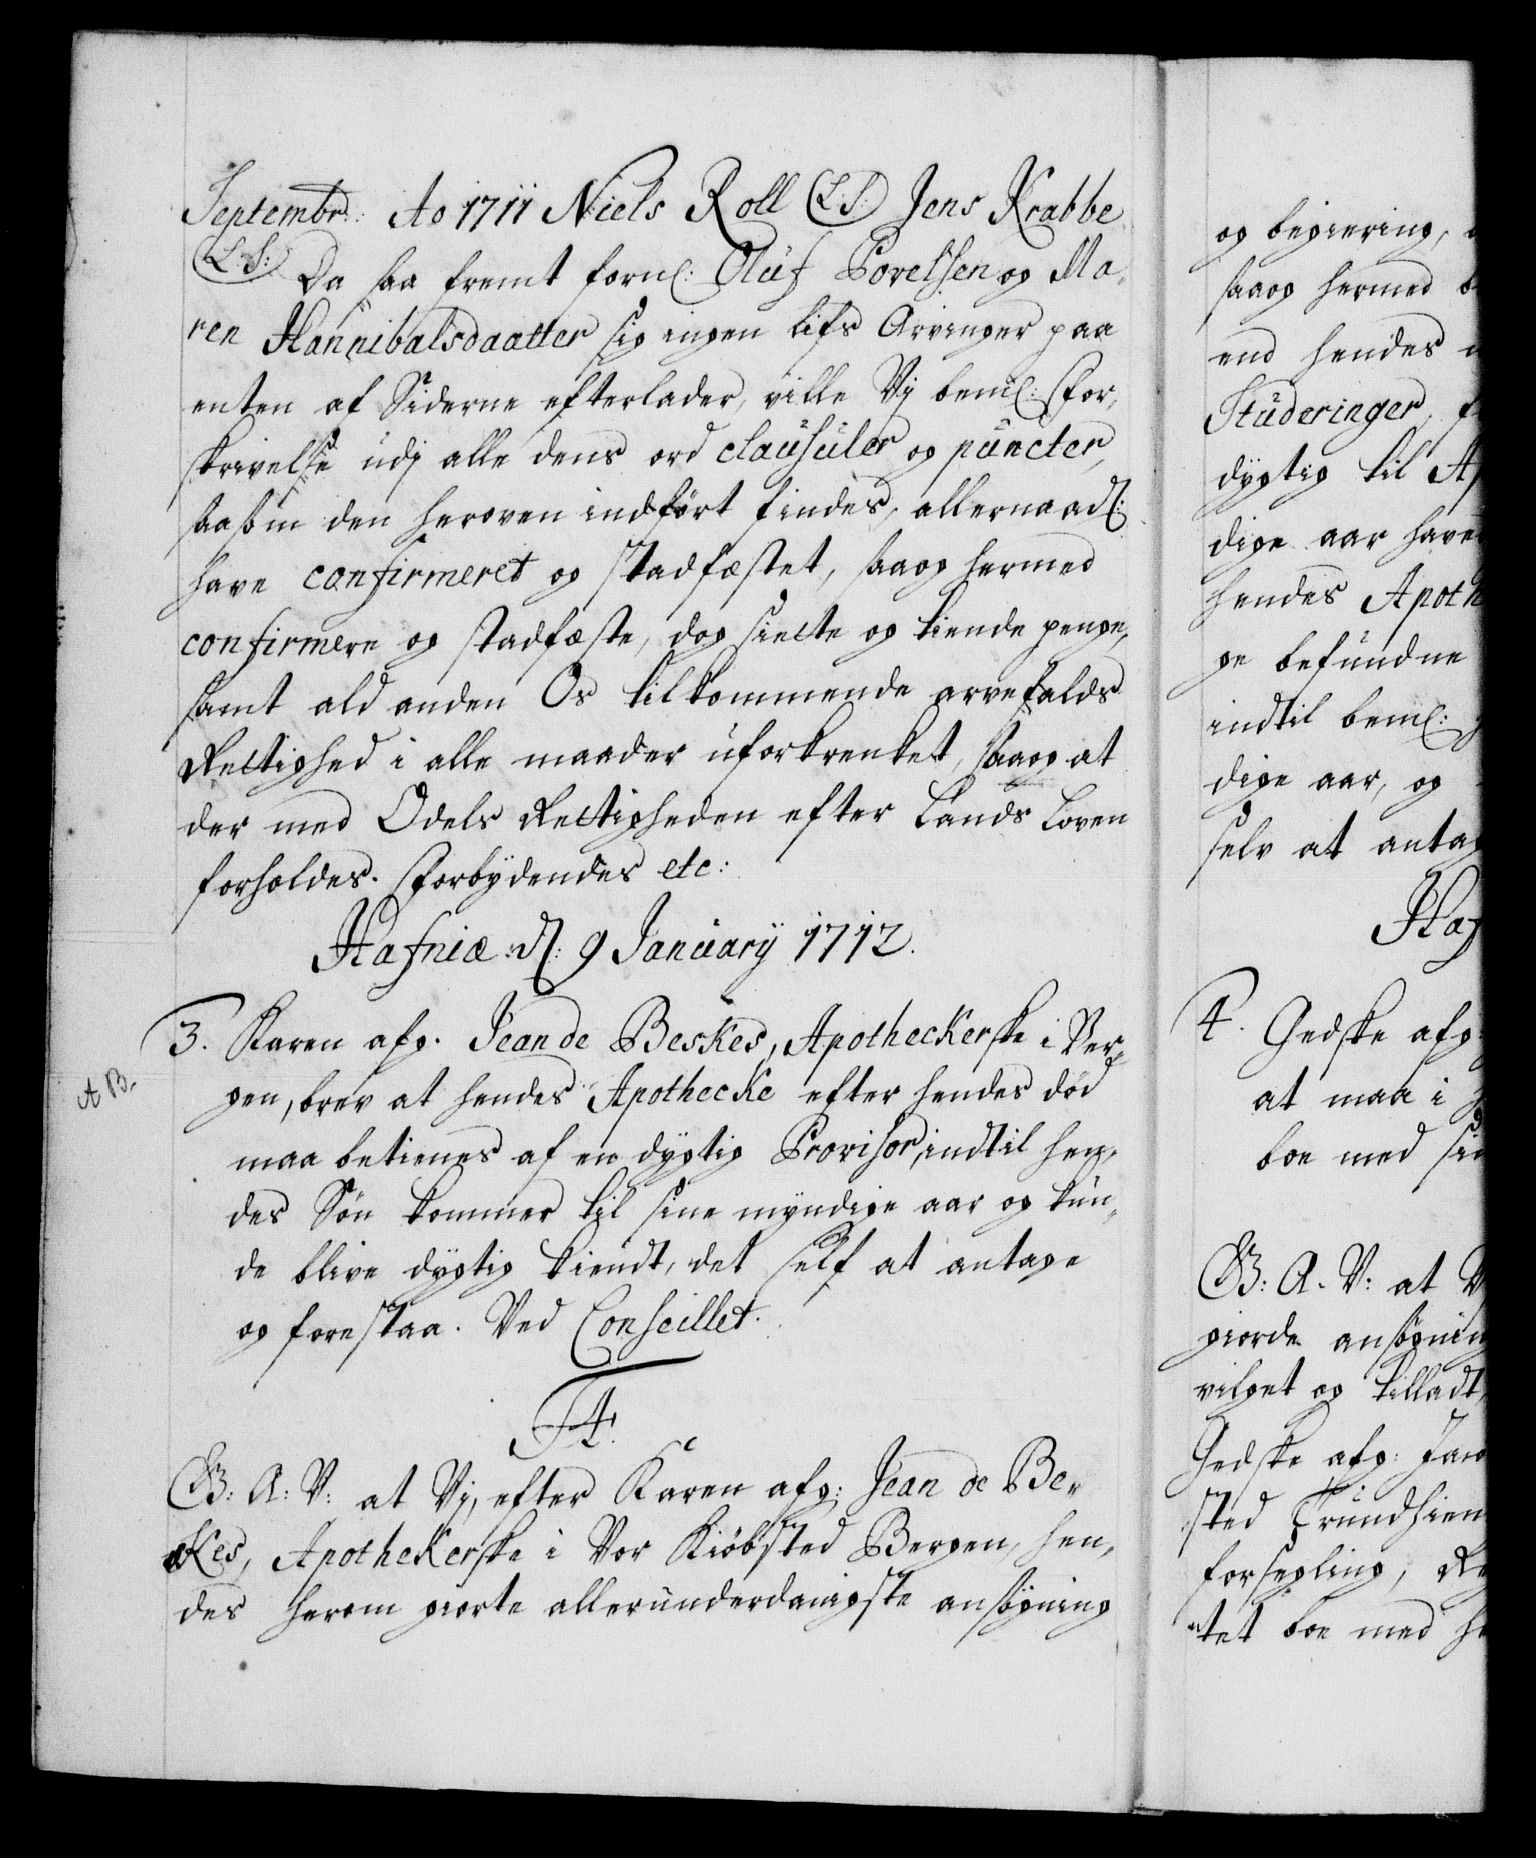 Septembr: Ao 1711 Niels Roll (L.S.) Jens Krabbe
(L.S:) Da saa fremt forn: Oluf Povelsen og Ma-
ren Hannibalsdaatter sig ingen lifs Arvinger paa
enten af Siderne efterlader, ville Vj bem: For-
skrivelse udj alle dens ord clausuler og puncter,
saasom den heroven indført findes, allernaad:
have confirmeret og stadfæstet, saa og hermed
confirmere og stadfæste, dog siette og tiende penge,
samt ald anden Os tilkommende arvefalds
Rettighed i alle maader uforkrenket, saa og at
der med Odels Rettigheden efter Lands Loven
forholdes. Forbydendes etc:
Hafniæ d: 9 January 1712.
3. Karen afg. Jean de Beskes, Apotheckerske i Ber-
AB.
gen, brev at hendes Apothecke efter hendes død
maa betienes af en dygtig Provisor, indtil hen-
des Søn kommer til sine myndige aar og kun-
de blive dygtig kiendt, det self at antage
og forestaa. Ved Conseillet.
F4.
G: A: V: at Vj, efter Karen afg: Jean de Be-
skes, Apothekerske i Vor Kiøbsted Bergen, hen-
des herom giorte allerunderdanigste ansøgning
og begiering,
saa og hermed b
end hendes
Studeringer, f
dygtig til Ap
dige aar have
hendes Apoth
ge befundne
indtil bem:
dige aar, og
selv at antag
Haf
4. Gedske afg:
at maa i
boe med si
G: A. V: at V
giorde ansøgnin
vilget og tilladt,
Gedske afg: Jaco
sted Trundhiem
forsegling, Re
tet boe med h